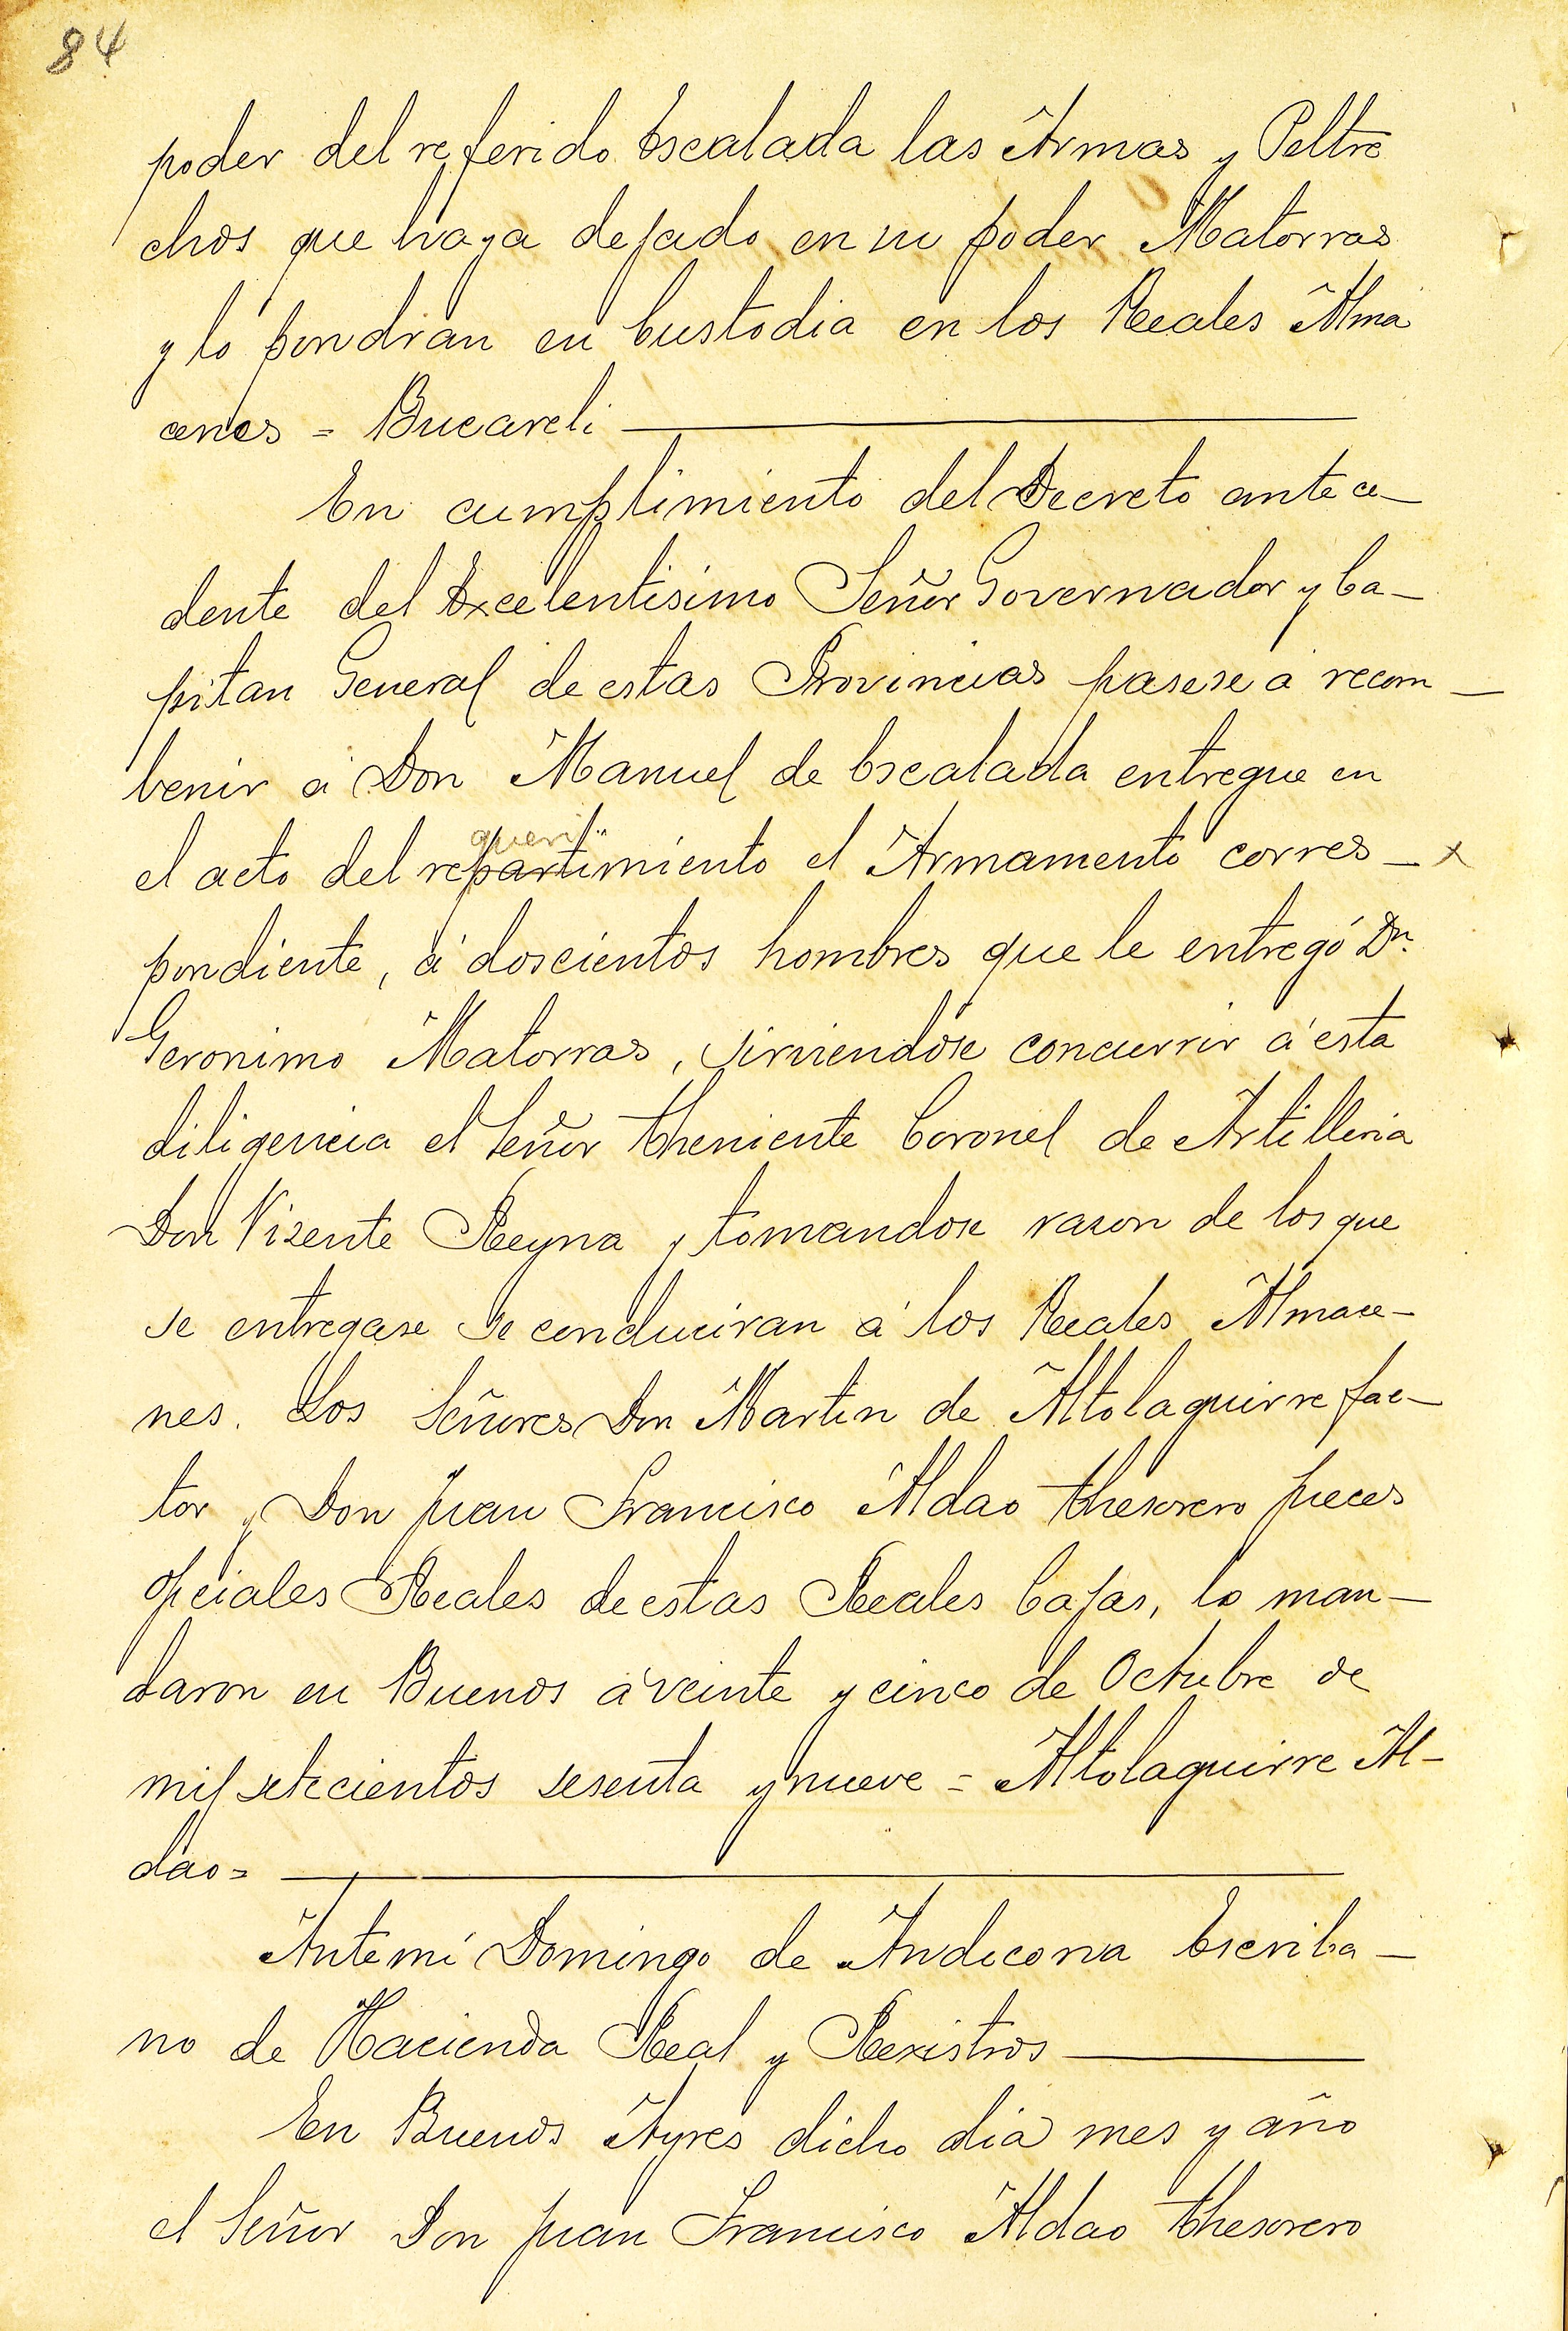 84
poder del referido Escalada las Armas y Peltre
chos que haya dejado en su poder Matorras
y lo pondran en Custodia en los Reales Alma
cenes = Bucareli
En cumplimiento del Decreto antece-
dente del Excelentisimo Señor Governador y Ca-
pitan General de estas Provincias pasese á recom-
benir á Don Manuel de Escalada entregue en
queri
el acto del repartimiento el Armamento corres- x
pondiente, á doscientos hombres que le entregó Dn.
Geronimo Matorras, sirviendose concurrir á esta
diligencia el Señor Theniente Coronel de Artilleria
Don Vizente Reyna y tomandose razon de los que
se entregase se conduciran á los Reales Almace-
nes. Los Señores Don Martin de Altolaguirre fac-
tor y Don Juan Francisco Aldao Thesorero Jueces
oficiales Reales de estas Reales Cajas, lo man-
daron en Buenos á veinte y cinco de Octubre de
mil setecientos sesenta y nueve = Altolaguirre Al-
dao=
Antemí Domingo de Andecona Escriba-
no de Hacienda Real y Rexistros
En Buenos Ayres dicho dia mes y año
el Señor Don Juan Francisco Aldao Thesorero